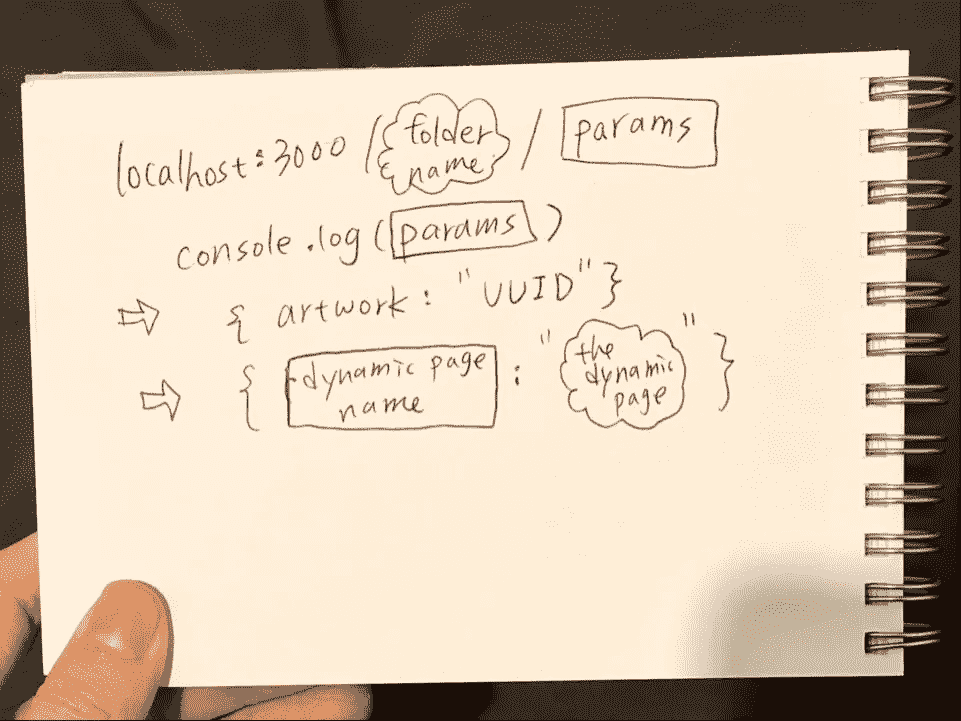 localhost:3000 / folder name / params
console.log(params)
⇨ { artwork : "UUID" }
⇨ { dynamic page name : "the dynamic page" }